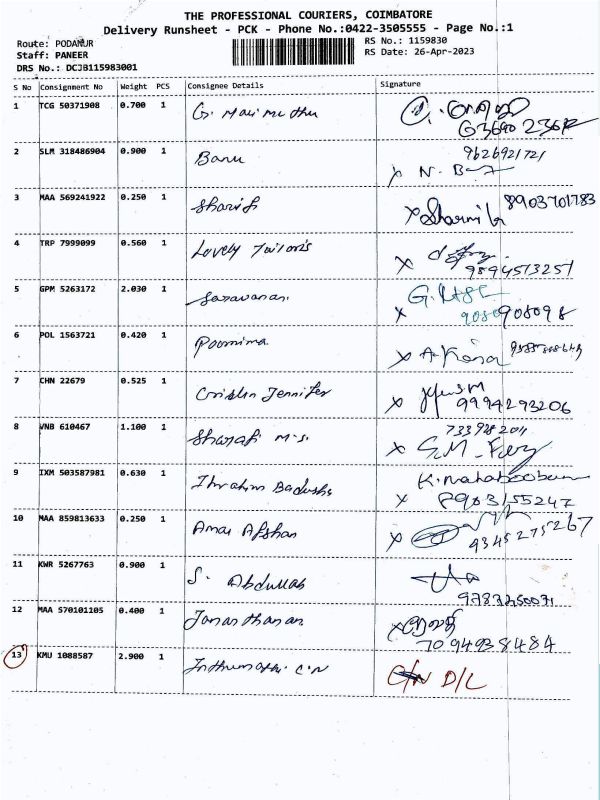 THE PROFESSIONAL COURIERS, COIMBATORE
Delivery Runsheet - PCK - Phone No.:0422-3505555 - Page No.:1
Route: PODANUR
RS No.: 1159830
Staff: PANEER
RS Date: 26-Apr-2023
DRS No.: DCJB115983001
S No Consignment No Weight PCS Consignee Details Signature
1 TCG 50371908 0.700 1 G. Mari Muthu
2 SLM 318486904 0.900 1 Banu 9626921721
x N. B
3 MAA 569241922 0.250 1 Sharif x Sharmila 8903701783
4 TRP 7999099 0.560 1 Lovely Tailoris x
9894513251
5 GPM 5263172 2.030 1 Saravanan G.
x 9080908098
6 POL 1563721 0.420 1 Poornima x A.
7 CHN 22679 0.525 1 Cristin Jennifer x
9994293206
8 VNB 610467 1.100 1 Sharafi M.S.
x S.M.
9 IXM 503587981 0.630 1 Ibrahim Badusha K. Mahaboob
x 8903155247
10 MAA 859813633 0.250 1 Amar Afshan x 9345275267
11 KWR 5267763 0.900 1 S. Abdullah
12 MAA 570101105 0.400 1 Janarthanan x
7094938484
13 KMU 1088587 2.900 1 Inthumathi C.N D/L